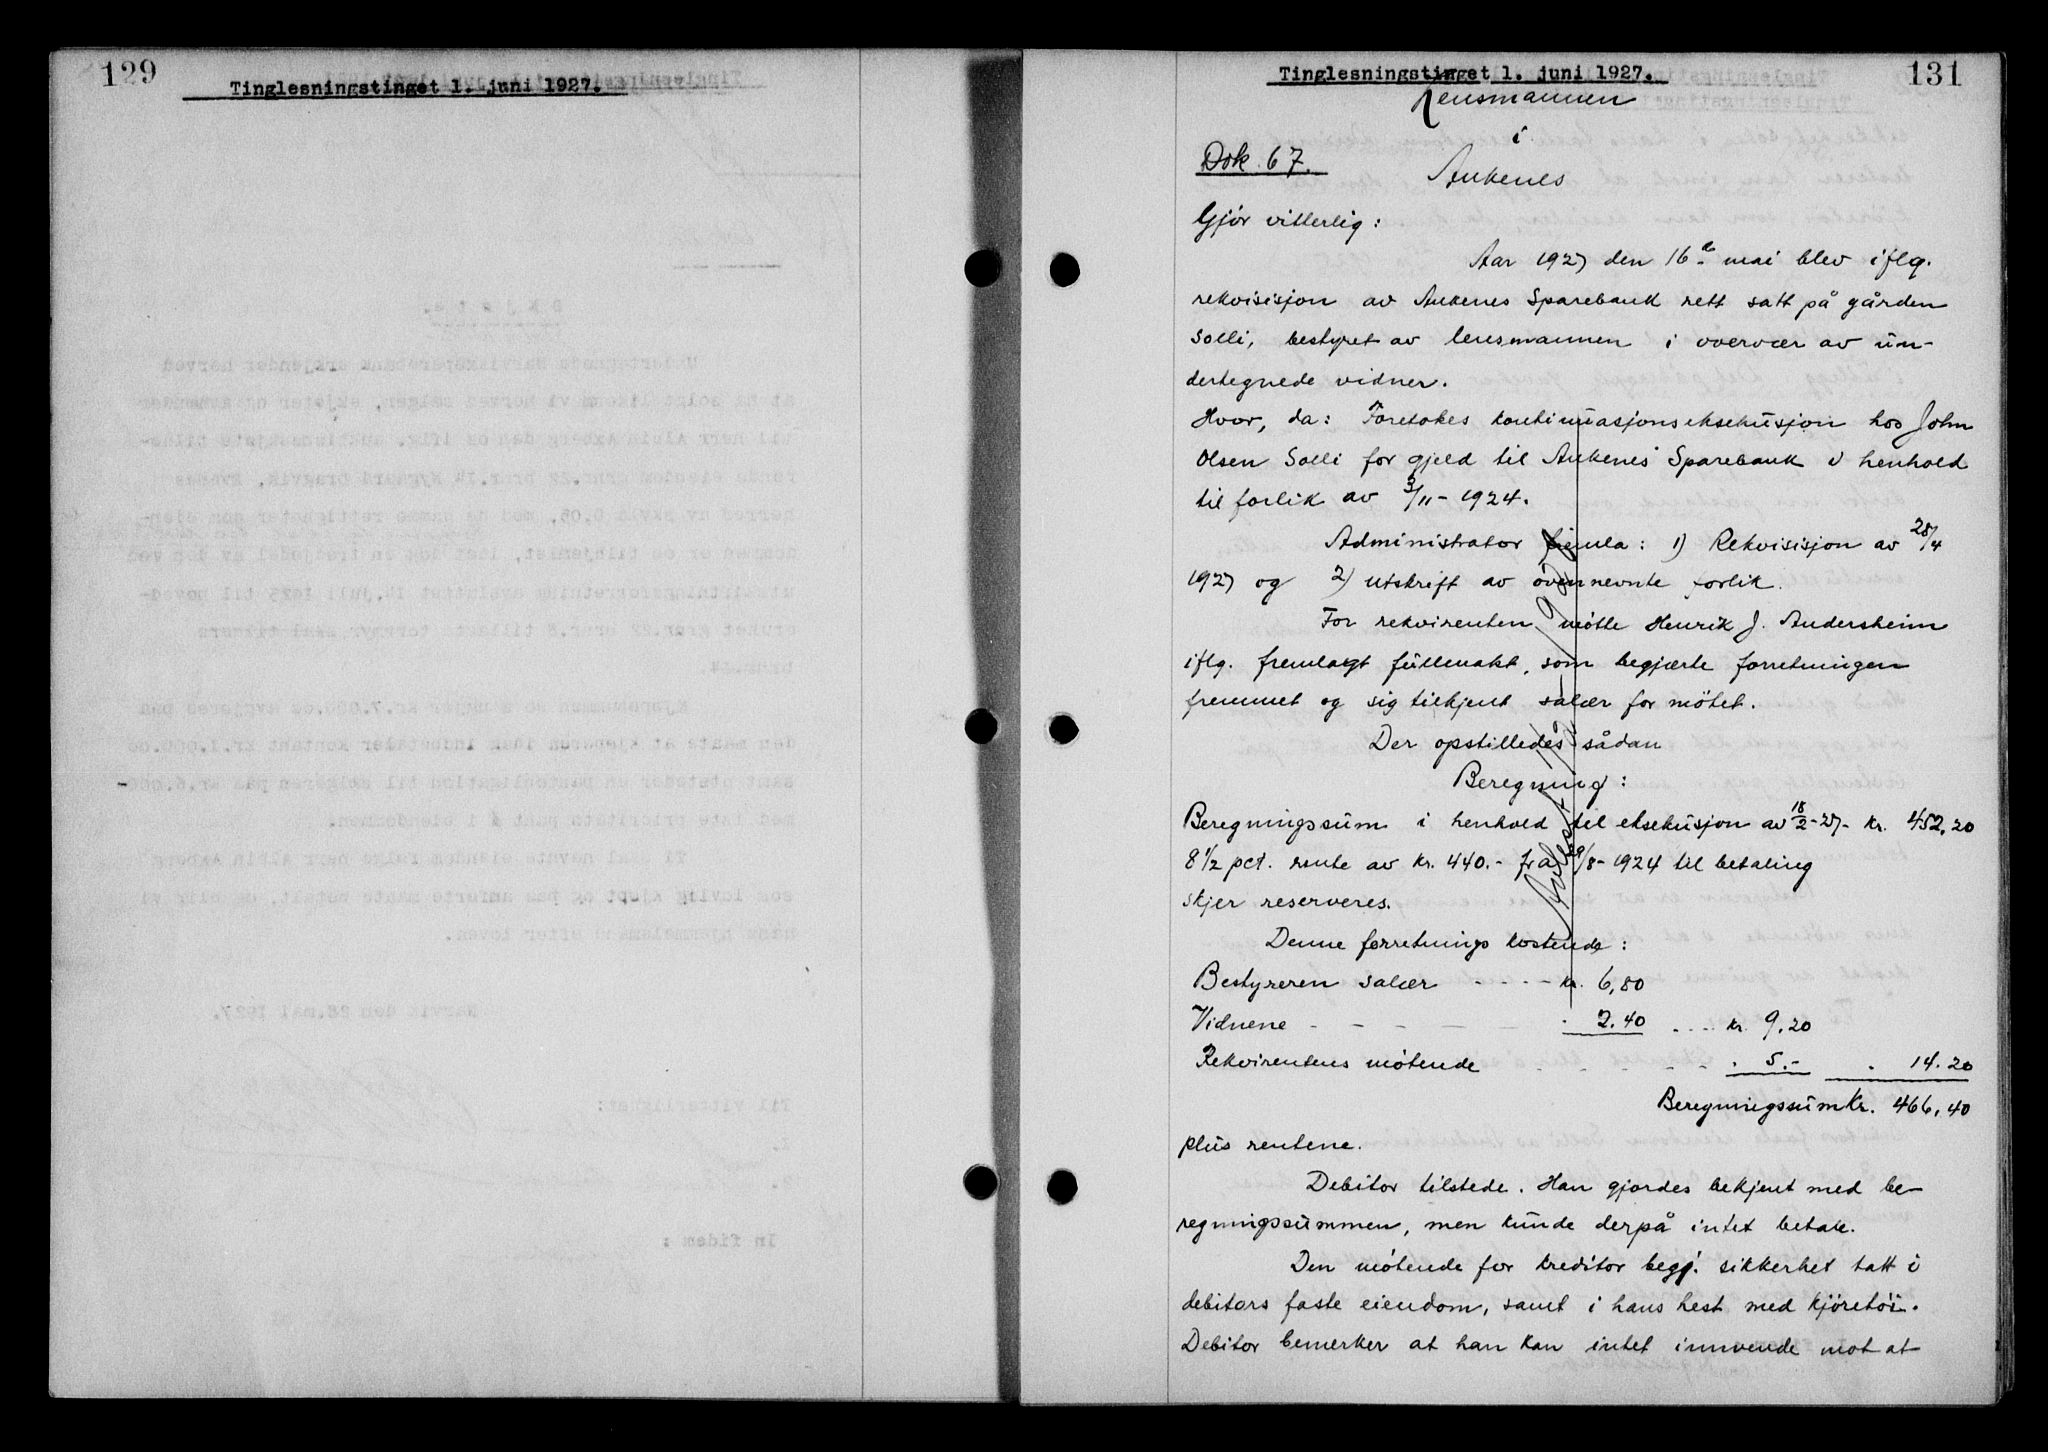 129
Tinglesningstinget 1. juni 1927.
Tinglesningstinget 1. juni 1927.
131
Lensmannen
i
Dok. 67.
Ankenes
Gjör vitterlig:
Aar 1927 den 16de mai blev iflg.
rekvisisjon av Ankenes Sparebank rett satt på gården
Solli, bestyret av lensmannen i overvær av un-
dertegnede vidner.
Hvor, da: Foretokes kontinuasjonseksekusjon hos John
Olsen Solli for gjeld til Ankenes Sparebank i henhold
til forlik av 3/11 - 1924.
Administrator fremla: 1) Rekvisisjon av 28/4
1927 og 2) utskrift av ovennevnte forlik.
For rekvirenten mötte Henrik J. Andersheim
iflg. fremlagt fullmakt, som begjærte forretningen
fremmet og sig tilkjent salær for mötet.
Der opstilledes sådan
Beregning:
Beregningssum i henhold til eksekusjon av 18/2 - 27 - kr. 452,20
8 1/2 pct. rente av kr. 440.- fra 29/8 - 1924 til betaling
skjer reserveres.
Denne forretnings kostende:
Bestyreren salær - - - - kr. 6,80
Vidnene - - - - - - . 2.40 . . . - kr. 9.20
Rekvirentens mötende - - - - - . 5.- . 14.20
Beregningssum Kr. 466,40
plus rentene.
Debitor tilstede. Han gjordes bekjent med be-
regningssummen, men kunde derpå intet betale.
Den mötende for kreditor begj. sikkerhet tatt i
debitors faste eiendom, samt i hans hest med kjöretöi.
Debitor bemerker at han kan intet innvende mot at